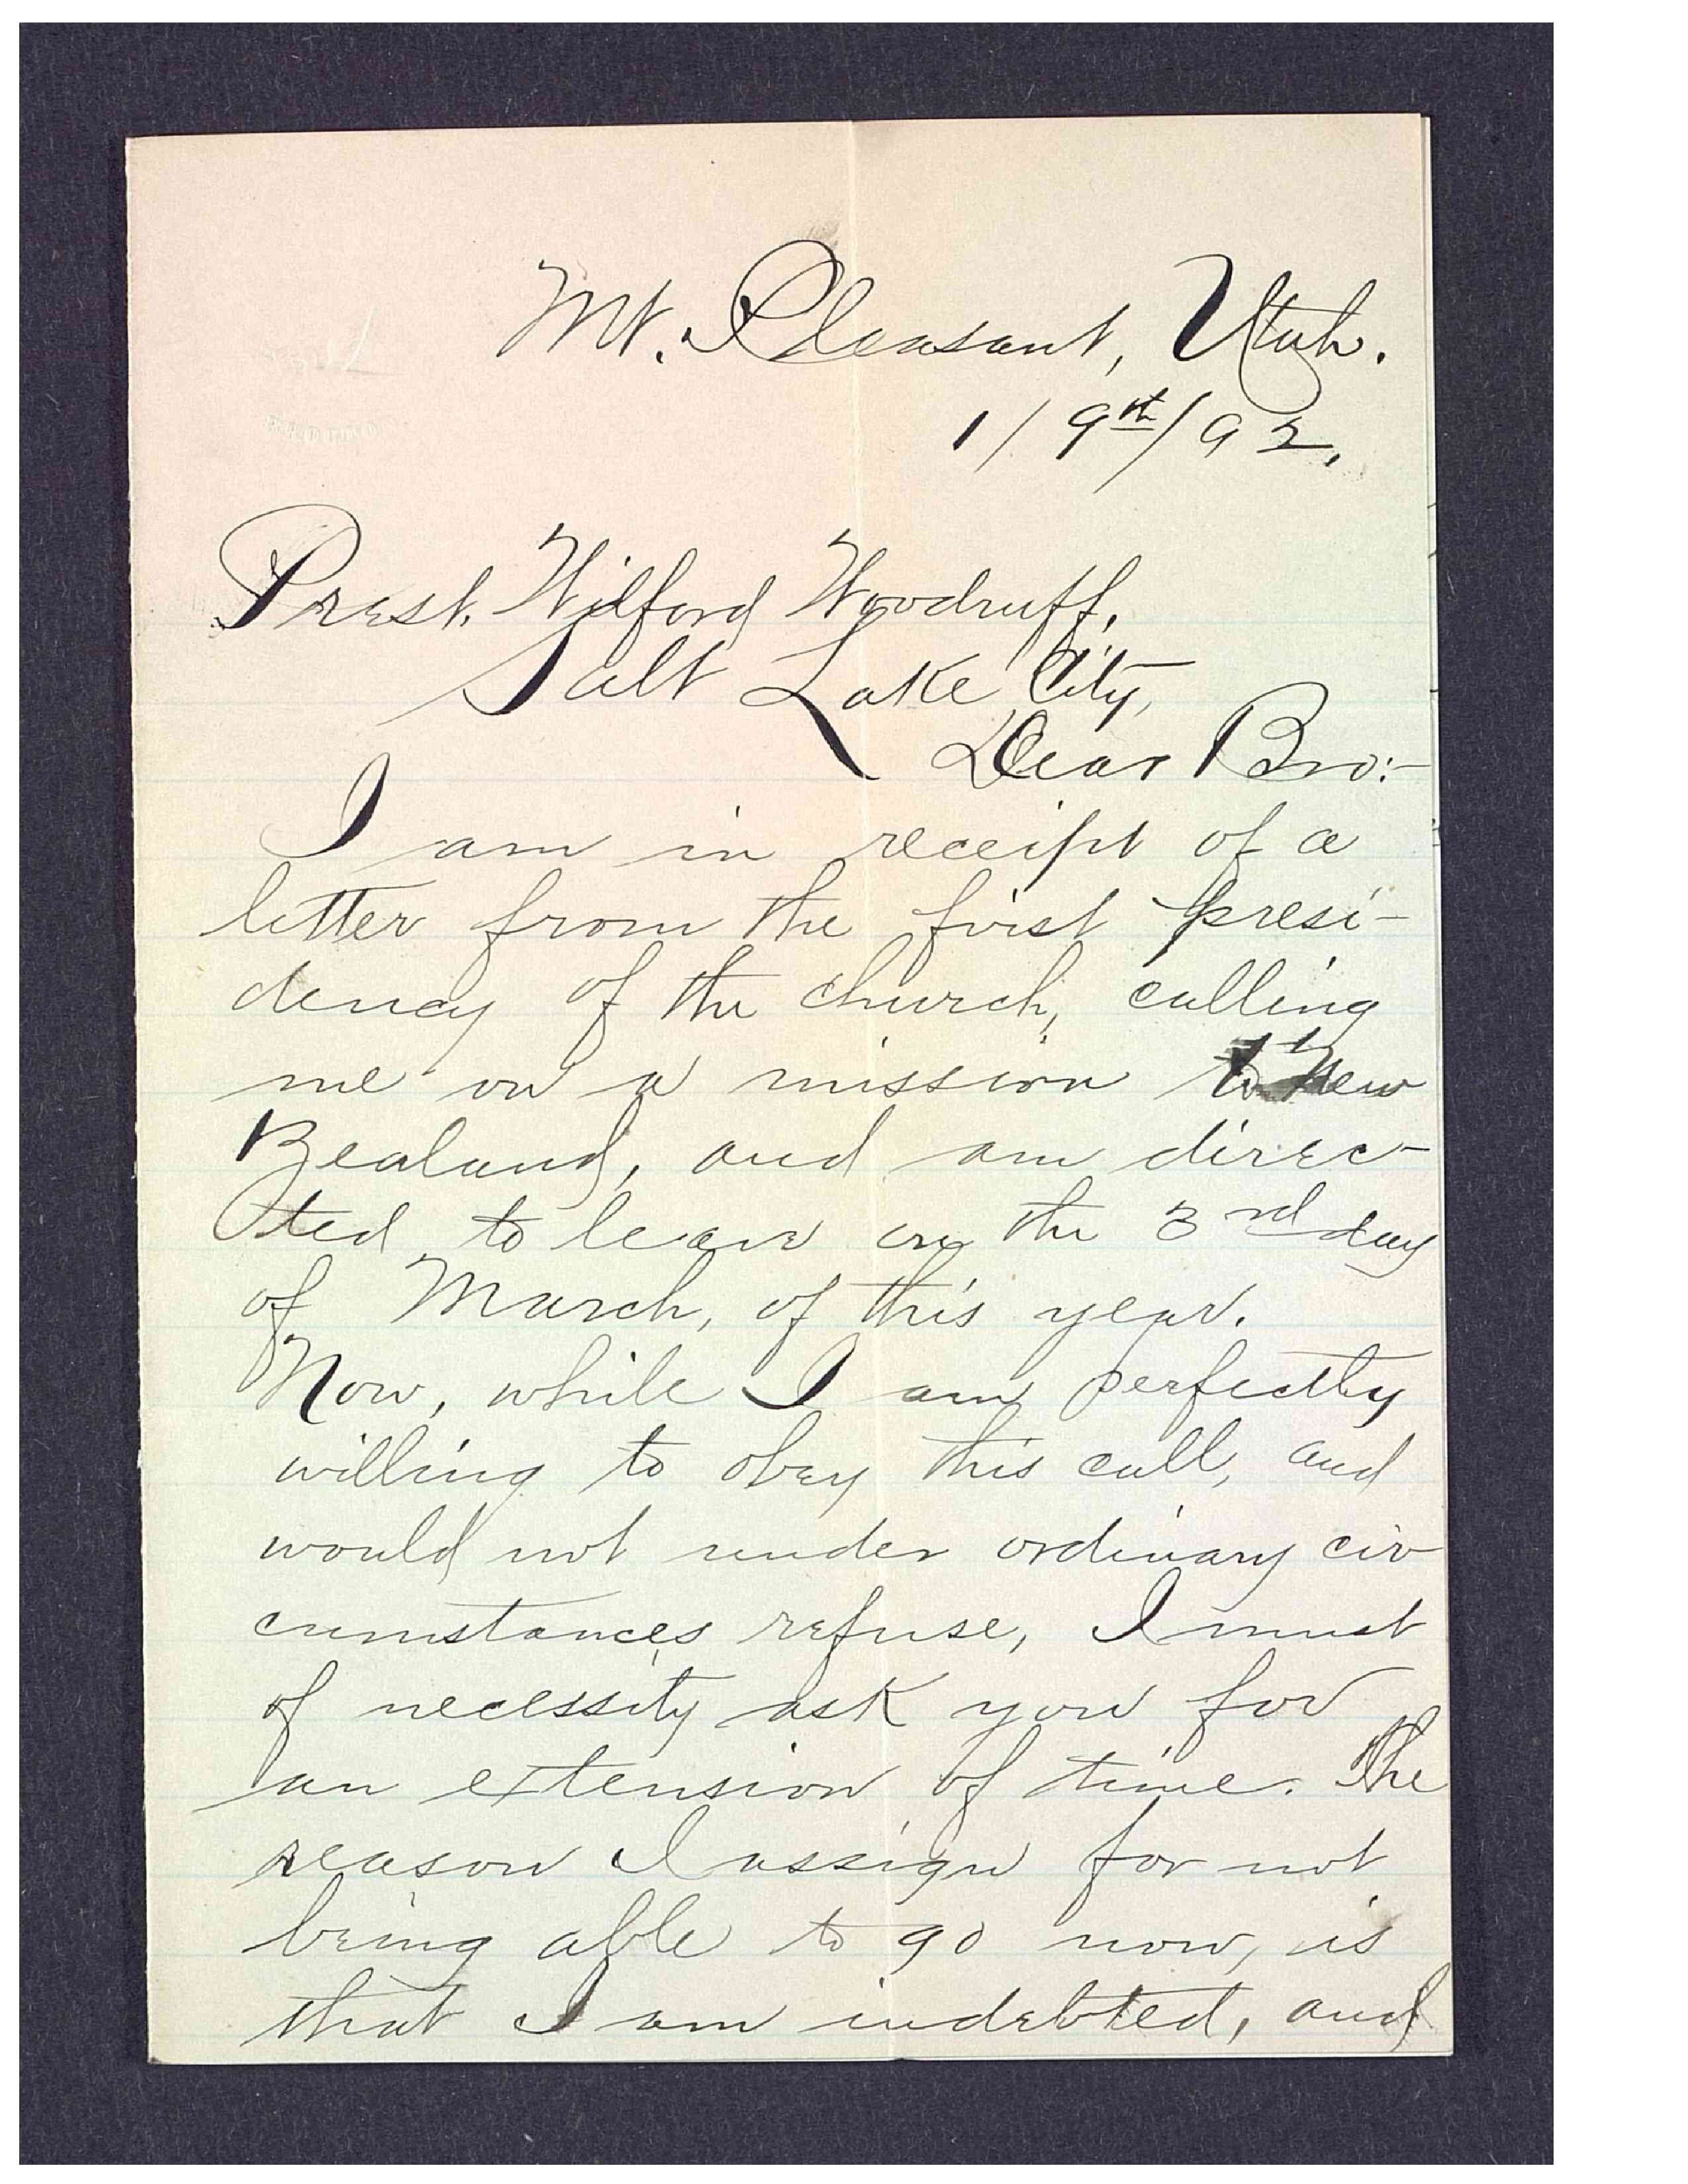 Mt. Pleasant, Utah.
1/9th/92.
Prest. Wilford Woodruff,
Salt Lake City,
Dear Bro:-
I am in receipt of a
letter from the first presi-
dency of the church, calling
me on a mission to New
Zealand, and am direc-
ted to leave on the 3rd day
of March, of this year.
Now, while I am perfectly
willing to obey this call, and
would not under ordinary cir-
cumstances refuse, I must
of necessity ask you for
an extension of time. The
reason I assign for not
being able to go now, is
that I am indebted, and